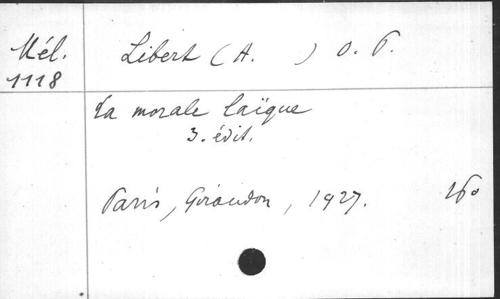 Mél.
1118
Libert (A. ) O. P.
La morale laïque
3. édit.
Paris, Giraudon, 1927. 16º